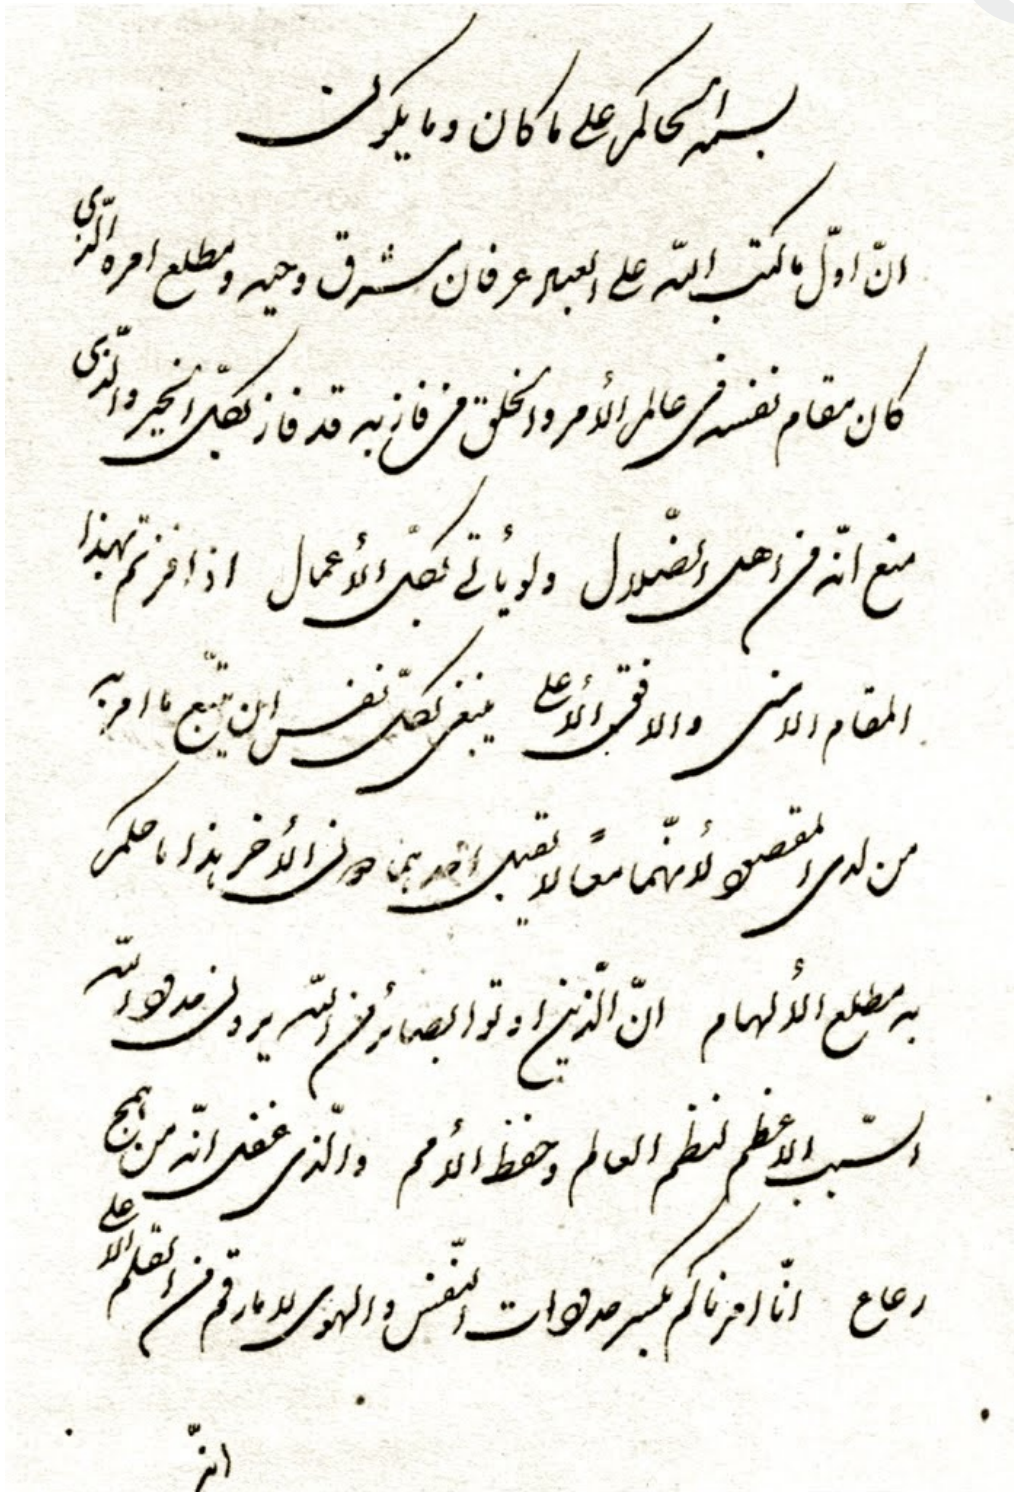 بسمه الحاكم على ما كان وما يكون
انّ اوّل ما كتب اللّه على العباد عرفان مشرق وحيه ومطلع امره الّذى
كان مقام نفسه فى عالم الأمر والخلق من فاز به قد فاز بكلّ الخير والّذى
منع انّه من اهل الضّلال ولو يأتى بكلّ الأعمال اذا فزتم بهذا
المقام الاسنى والافق الأعلى ينبغى لكلّ نفس ان يتّبع ما امر به
من لدى المقصود لأنّهما معًا لا يقبل احدهما دون الأخر هذا ما حكم
به مطلع الألهام انّ الّذين اوتوا بصائر من اللّه يرون حدود اللّه
السّبب الاعظم لنظم العالم وحفظ الأمم والّذى غفل انّه من همج
رعاع انّا امرناكم بكسر حدودات النّفس والهوى لا ما رقم من القلم الاعلى
انّه